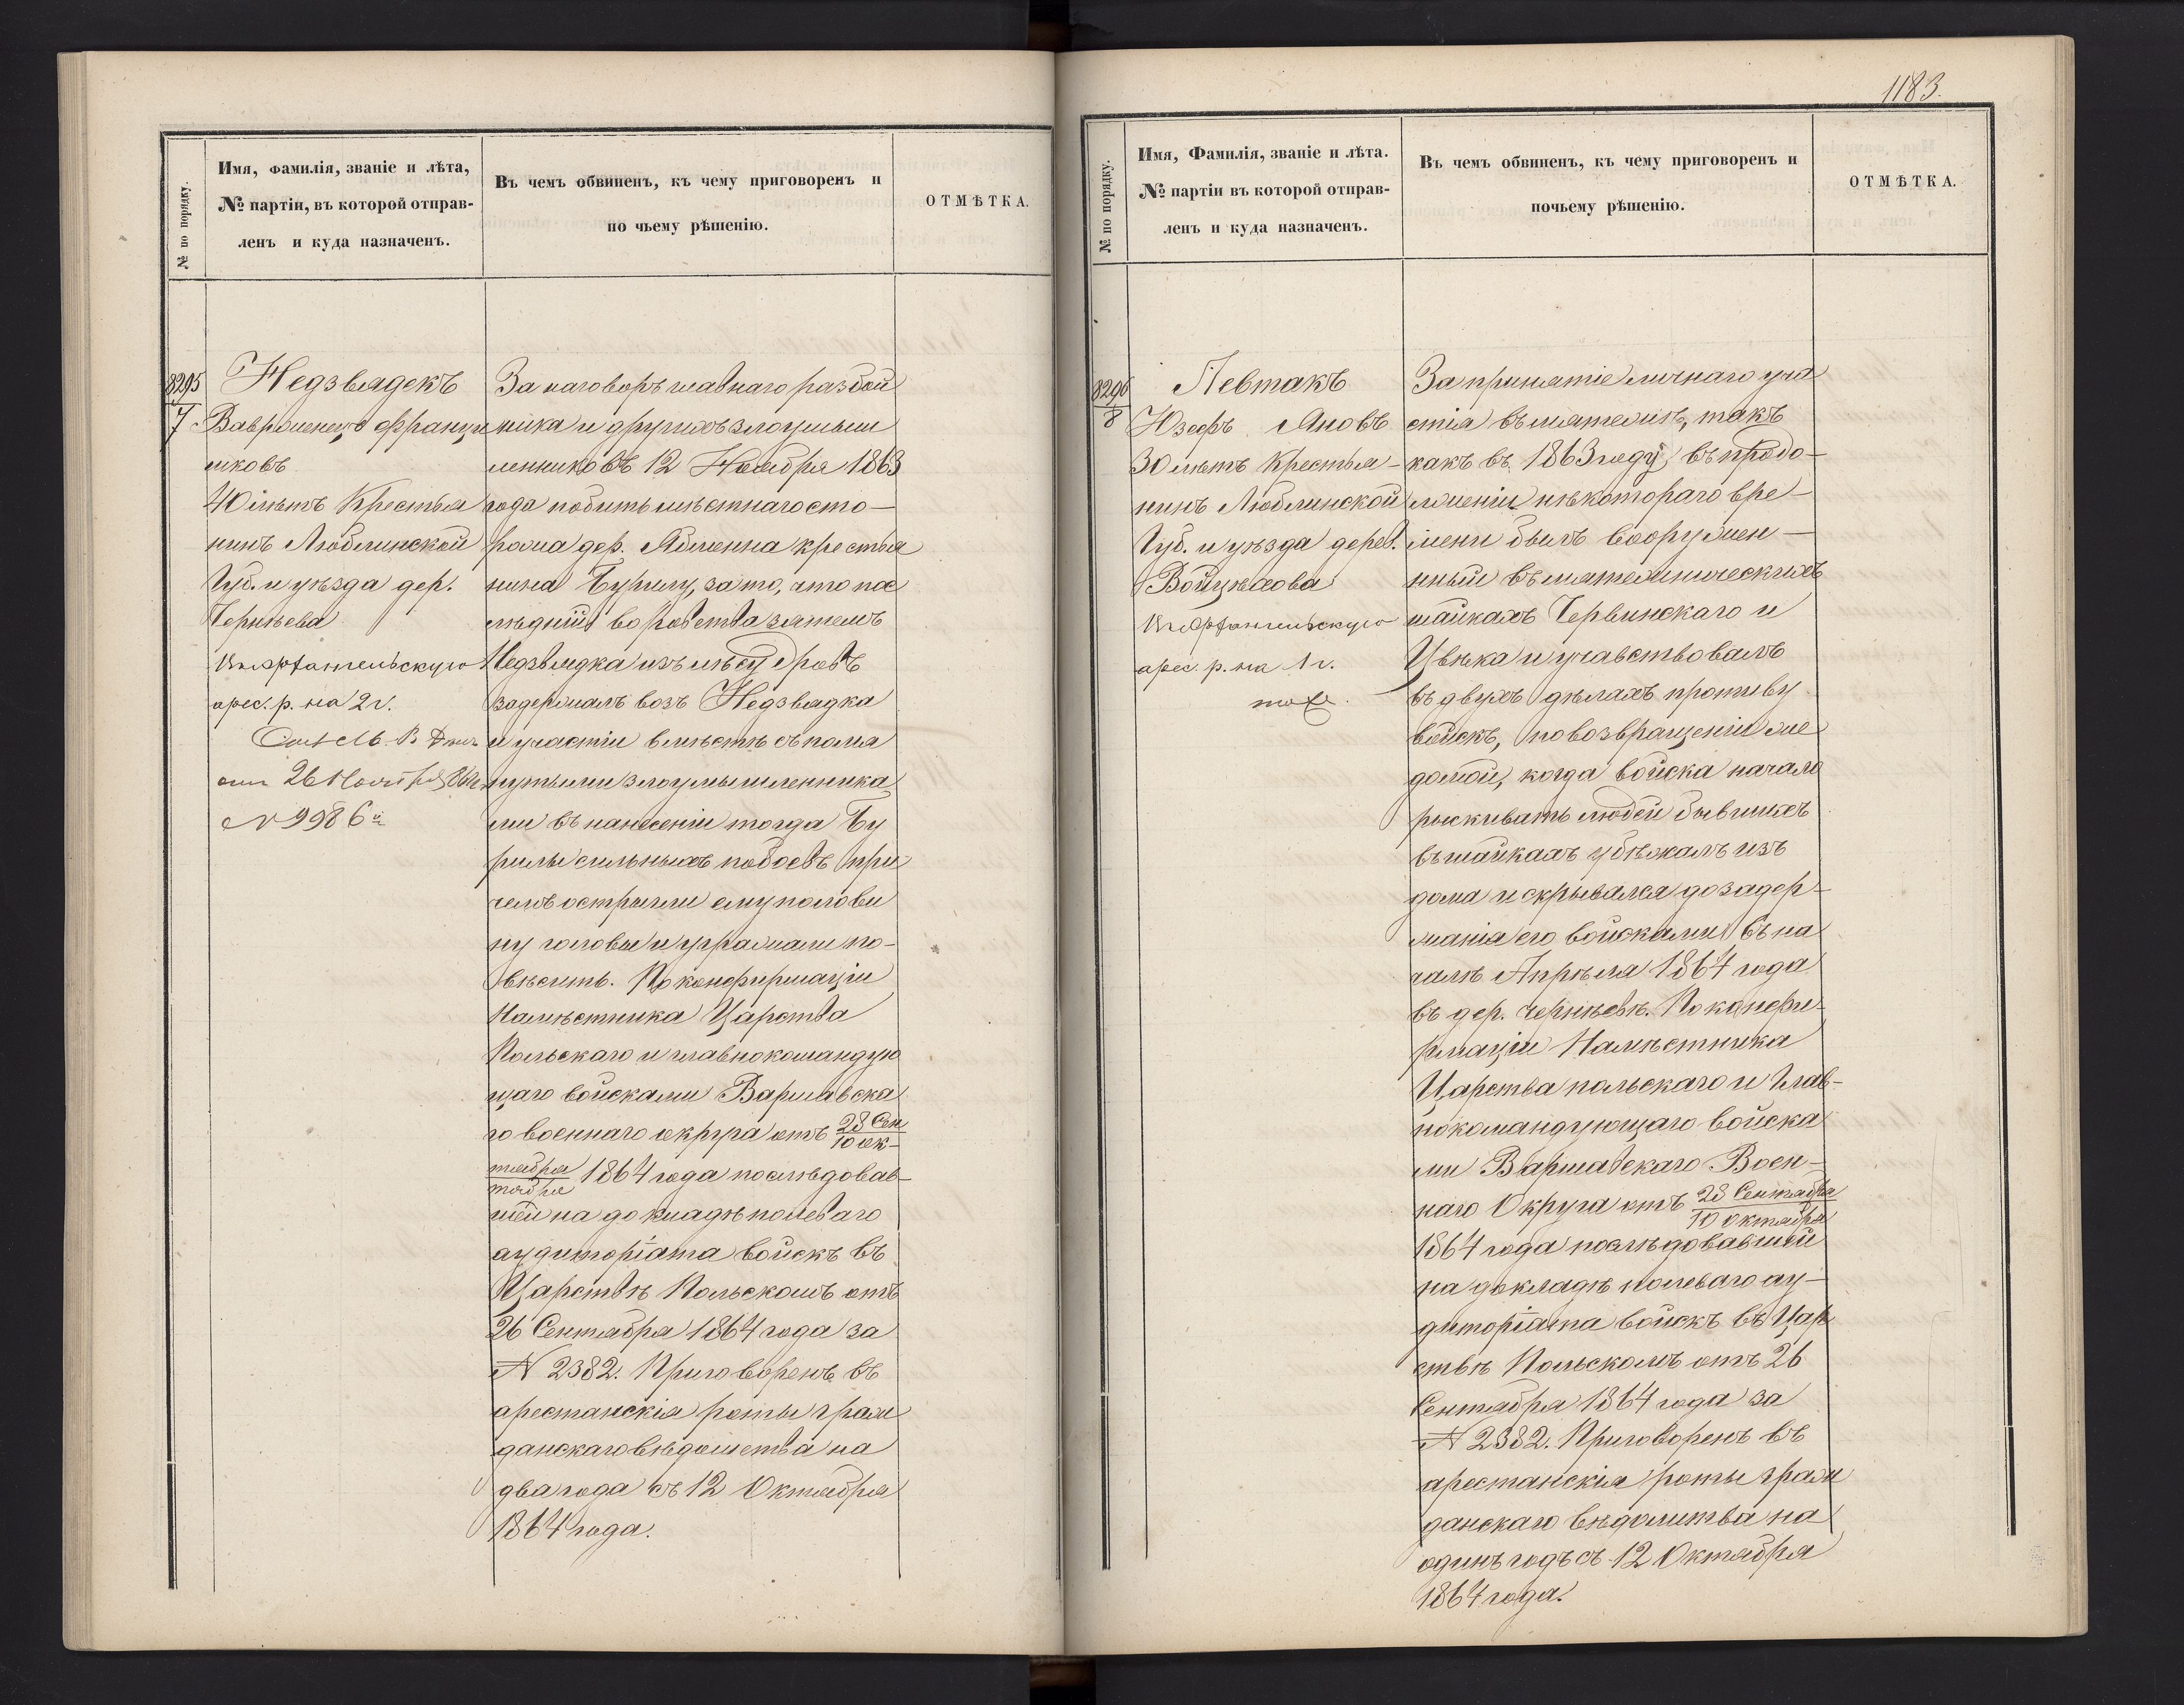 1183.
№ по порядку.
Имя, фамилія, званіе и лѣта,
№ партіи, въ которой отправ-
ленъ и куда назначенъ.
Въ чемъ обвиненъ, къ чему приговоренъ и
по чьему рѣшенію.
ОТМѢТКА.
8295
7
Недзвядекъ
Вавржинецъ Франци
шковъ
40 лѣтъ Крестья
нинъ Люблинской
Губ. и уѣзда дер.
Чернѣева
въ Архангельскую
арес. р. на 2 г.
26 Ноября
№ 9986
За наговоръ главнаго разбой
ника и другихъ злоумыш
ленниковъ 12 Ноября 1863
года побить мѣстнаго сто-
рожа дер. Яблонна крестья
нина Бурилу, за то, что пос
лѣдній воровства зятемъ
Недзвядка изъ лѣсу дровъ
задержалъ возъ Недзвядка
и участіи вмѣстѣ съ помя
нутыми злоумышленника
ми въ нанесеніи тогда Бу
рилы сильныхъ побоевъ при
чемъ остригли ему полови
ну головы и угрожали по-
вѣсить. По конфирмаціи
Намѣстника Царства
Польскаго и главнокомандую
щаго войсками Варшавска
го военнаго округа отъ 28 Сен
10 Ок-
тября
тября 1864 года послѣдовав-
шей на докладѣ полеваго
аудиторіата войскъ въ
Царствѣ Польскомъ отъ
26 Сентября 1864 года за
№ 2382. Приговоренъ въ
арестанскія роты граж
данскаго вѣдомства на
два года съ 12 Октября
1864 года.
№ по порядку.
Имя, Фамилія, званіе и лѣта.
№ партіи въ которой отправ-
ленъ и куда назначенъ.
Въ чемъ обвиненъ, къ чему приговоренъ и
почьему рѣшенію.
ОТМѢТКА.
8296
8
Левтакъ
Юзефъ Яновъ
30 лѣтъ Крестья-
нинъ Люблинской
Губ. и уѣзда дерев.
Войцѣхова
въ Архангельскую
арес. р. на 1 г.
тоже.
За принятіе личнаго уча
стія въ мятежѣ, такъ
какъ въ 1863 году, въ продо-
лженіи нѣкотораго вре-
мени былъ вооружен-
нный въ мятежническихъ
шайкахъ Червинскаго и
Цвѣка и учавствовалъ
въ двухъ дѣлахъ противу
войскъ, по возвращеніи же
домой, когда войска начало
рыскивать людей бывшихъ
въ шайкахъ убѣжалъ изъ
дома и скрывался до задер-
жанія его войсками въ на
чалѣ Апрѣля 1864 года
въ дер. Чернѣевѣ. По конфи-
рмаціи Намѣстника
Царства польскаго и Глав-
нокомандующаго войска
ми Варшавскаго Воен-
наго Округа отъ 28 Сентября
10 Октября
1864 года послѣдовавшей
на докладѣ полеваго ау-
диторіата войскъ въ Цар
ствѣ Польскомъ отъ 26
Сентября 1864 года за
№ 2382. Приговоренъ въ
арестанскія роты граж
данскаго вѣдомтва на
одинъ годъ съ 12 Октября
1864 года.